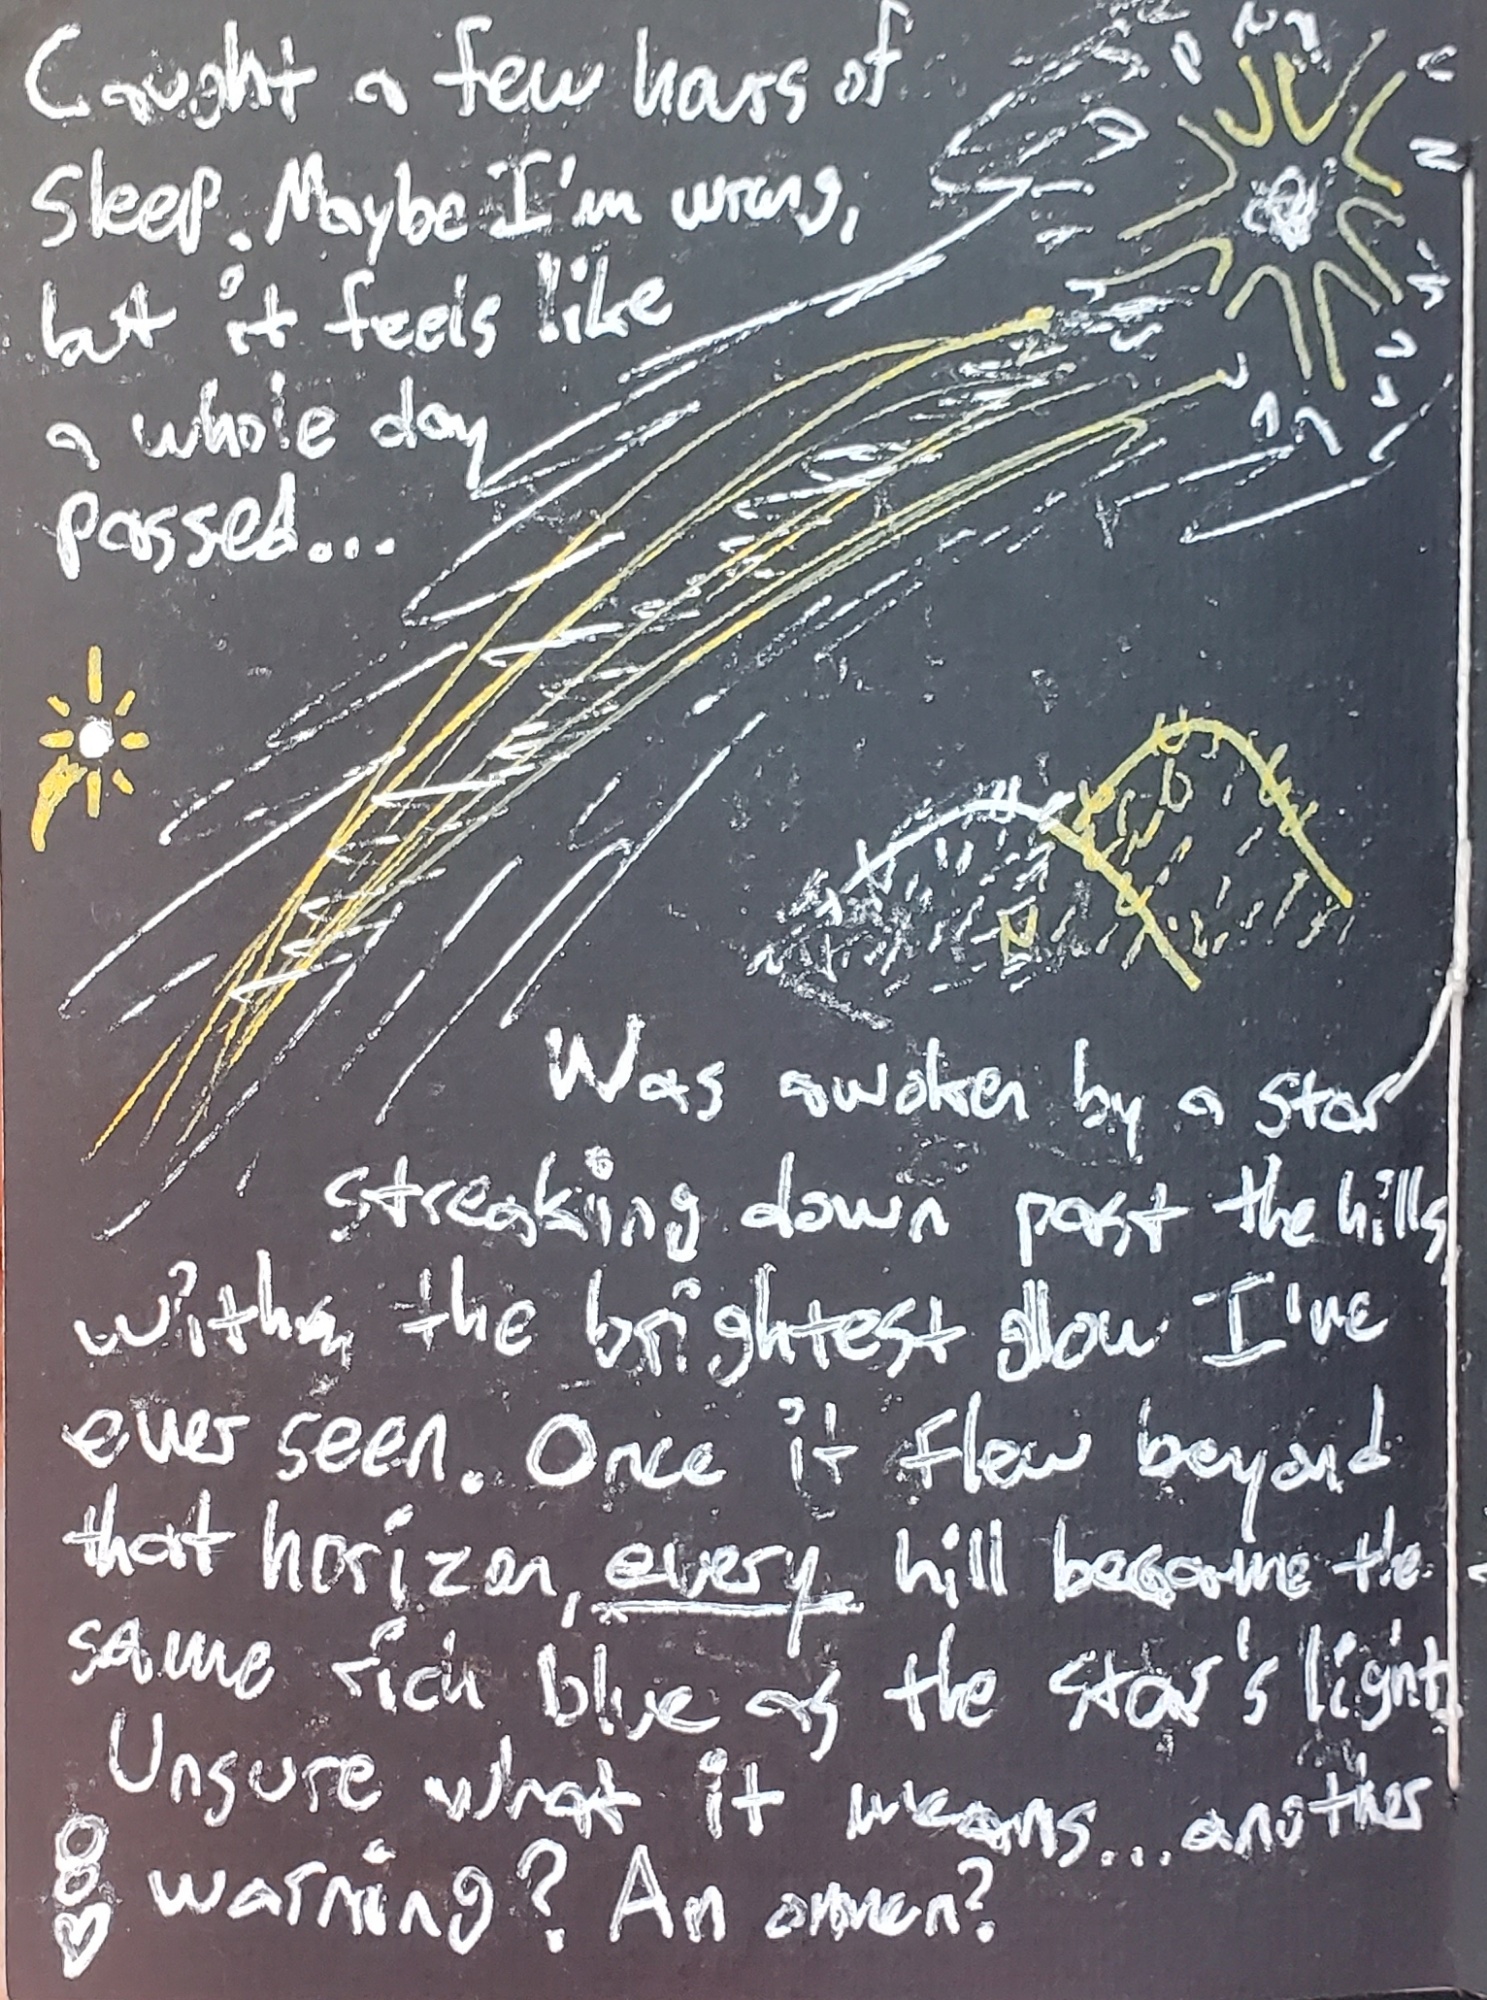 Caught a few hours of
sleep. Maybe I'm wrong,
but it feels like
a whole day
passed...
Was awoken by a star
streaking down past the hills
with the brightest glow I've
ever seen. Once it flew beyond
that horizon, every hill became the
same rich blue as the star's light
Unsure what it means... another
warning? An omen?